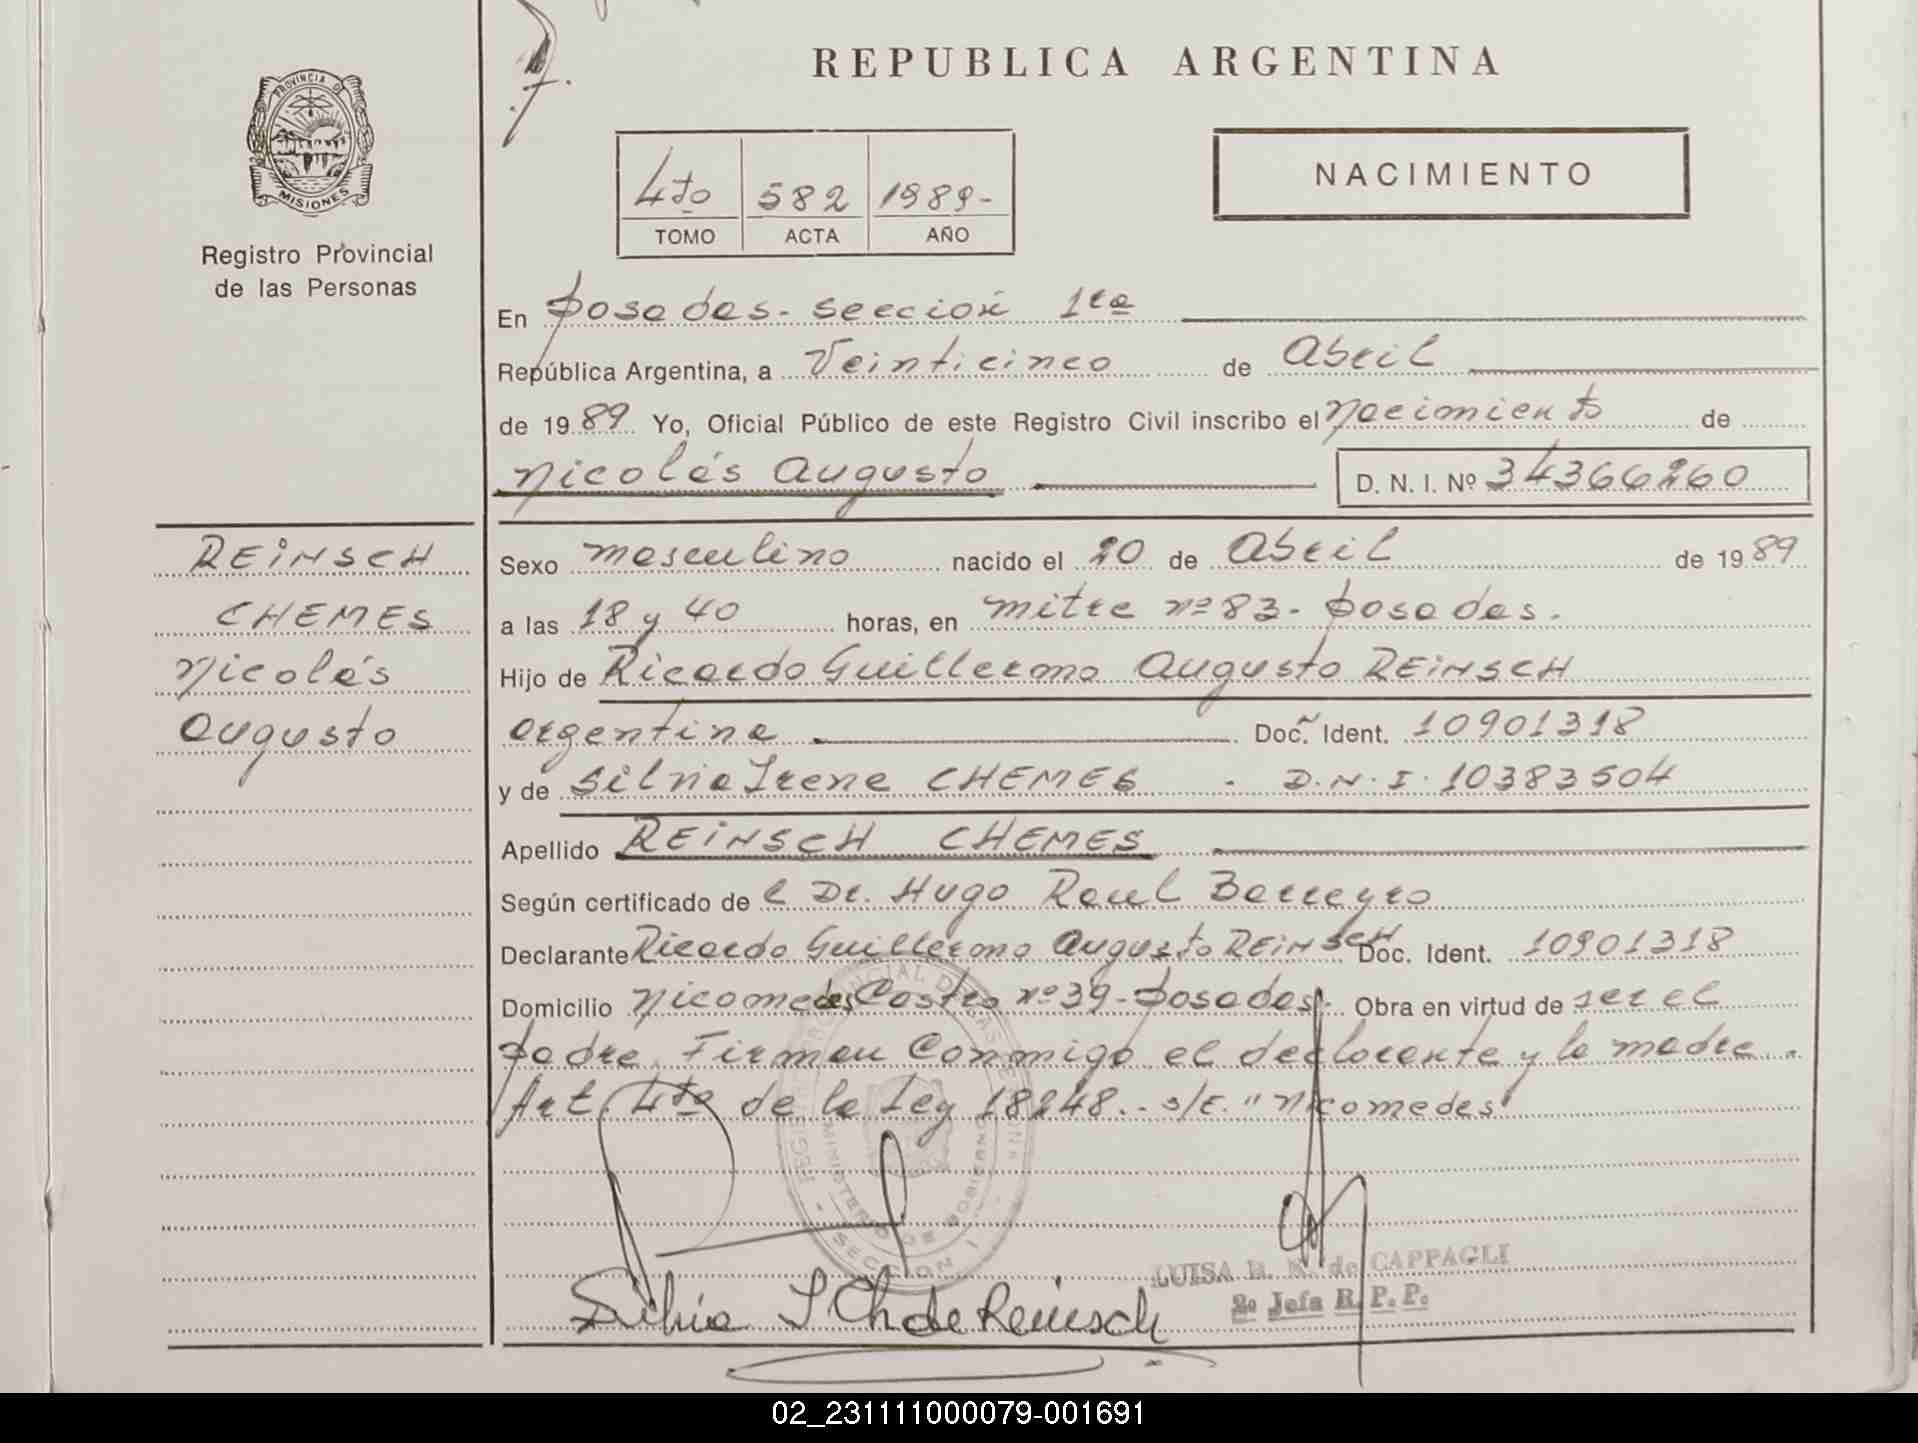 PROVINCIA DE
MISIONES
Registro Provincial
de las Personas
REINSCH
CHEMES
Nicolás
Augusto
REPUBLICA ARGENTINA
4to 582 1989-
TOMO ACTA AÑO
NACIMIENTO
En Posadas - sección 1ra
República Argentina, a Veinticinco de Abril
de 1989 Yo, Oficial Público de este Registro Civil inscribo el nacimiento de
Nicolás Augusto D. N. I. Nº 34366260
Sexo masculino nacido el 20 de Abril de 1989
a las 18 y 40 horas, en mitre nº 83 - Posadas.
Hijo de Ricardo Guillermo Augusto REINSCH
argentina Doc. Ident. 10901318
y de Silvia Irene CHEMES - D.N.I. 10383504
Apellido REINSCH CHEMES
Según certificado de l Dr. Hugo Raul Barreyro
Declarante Ricardo Guillermo Augusto REINSCH Doc. Ident. 10901318
Domicilio Nicomedes Castro nº 39 - Posadas. Obra en virtud de ser el
padre. Firman Conmigo el declarante y la madre.
Art. 4to de la Ley 18248.- s/r. "Nicomedes"
Silvia I Ch de Reinsch
LUISA de CAPPAGLI
2º Jefa R. P. P.
02_231111000079-001691